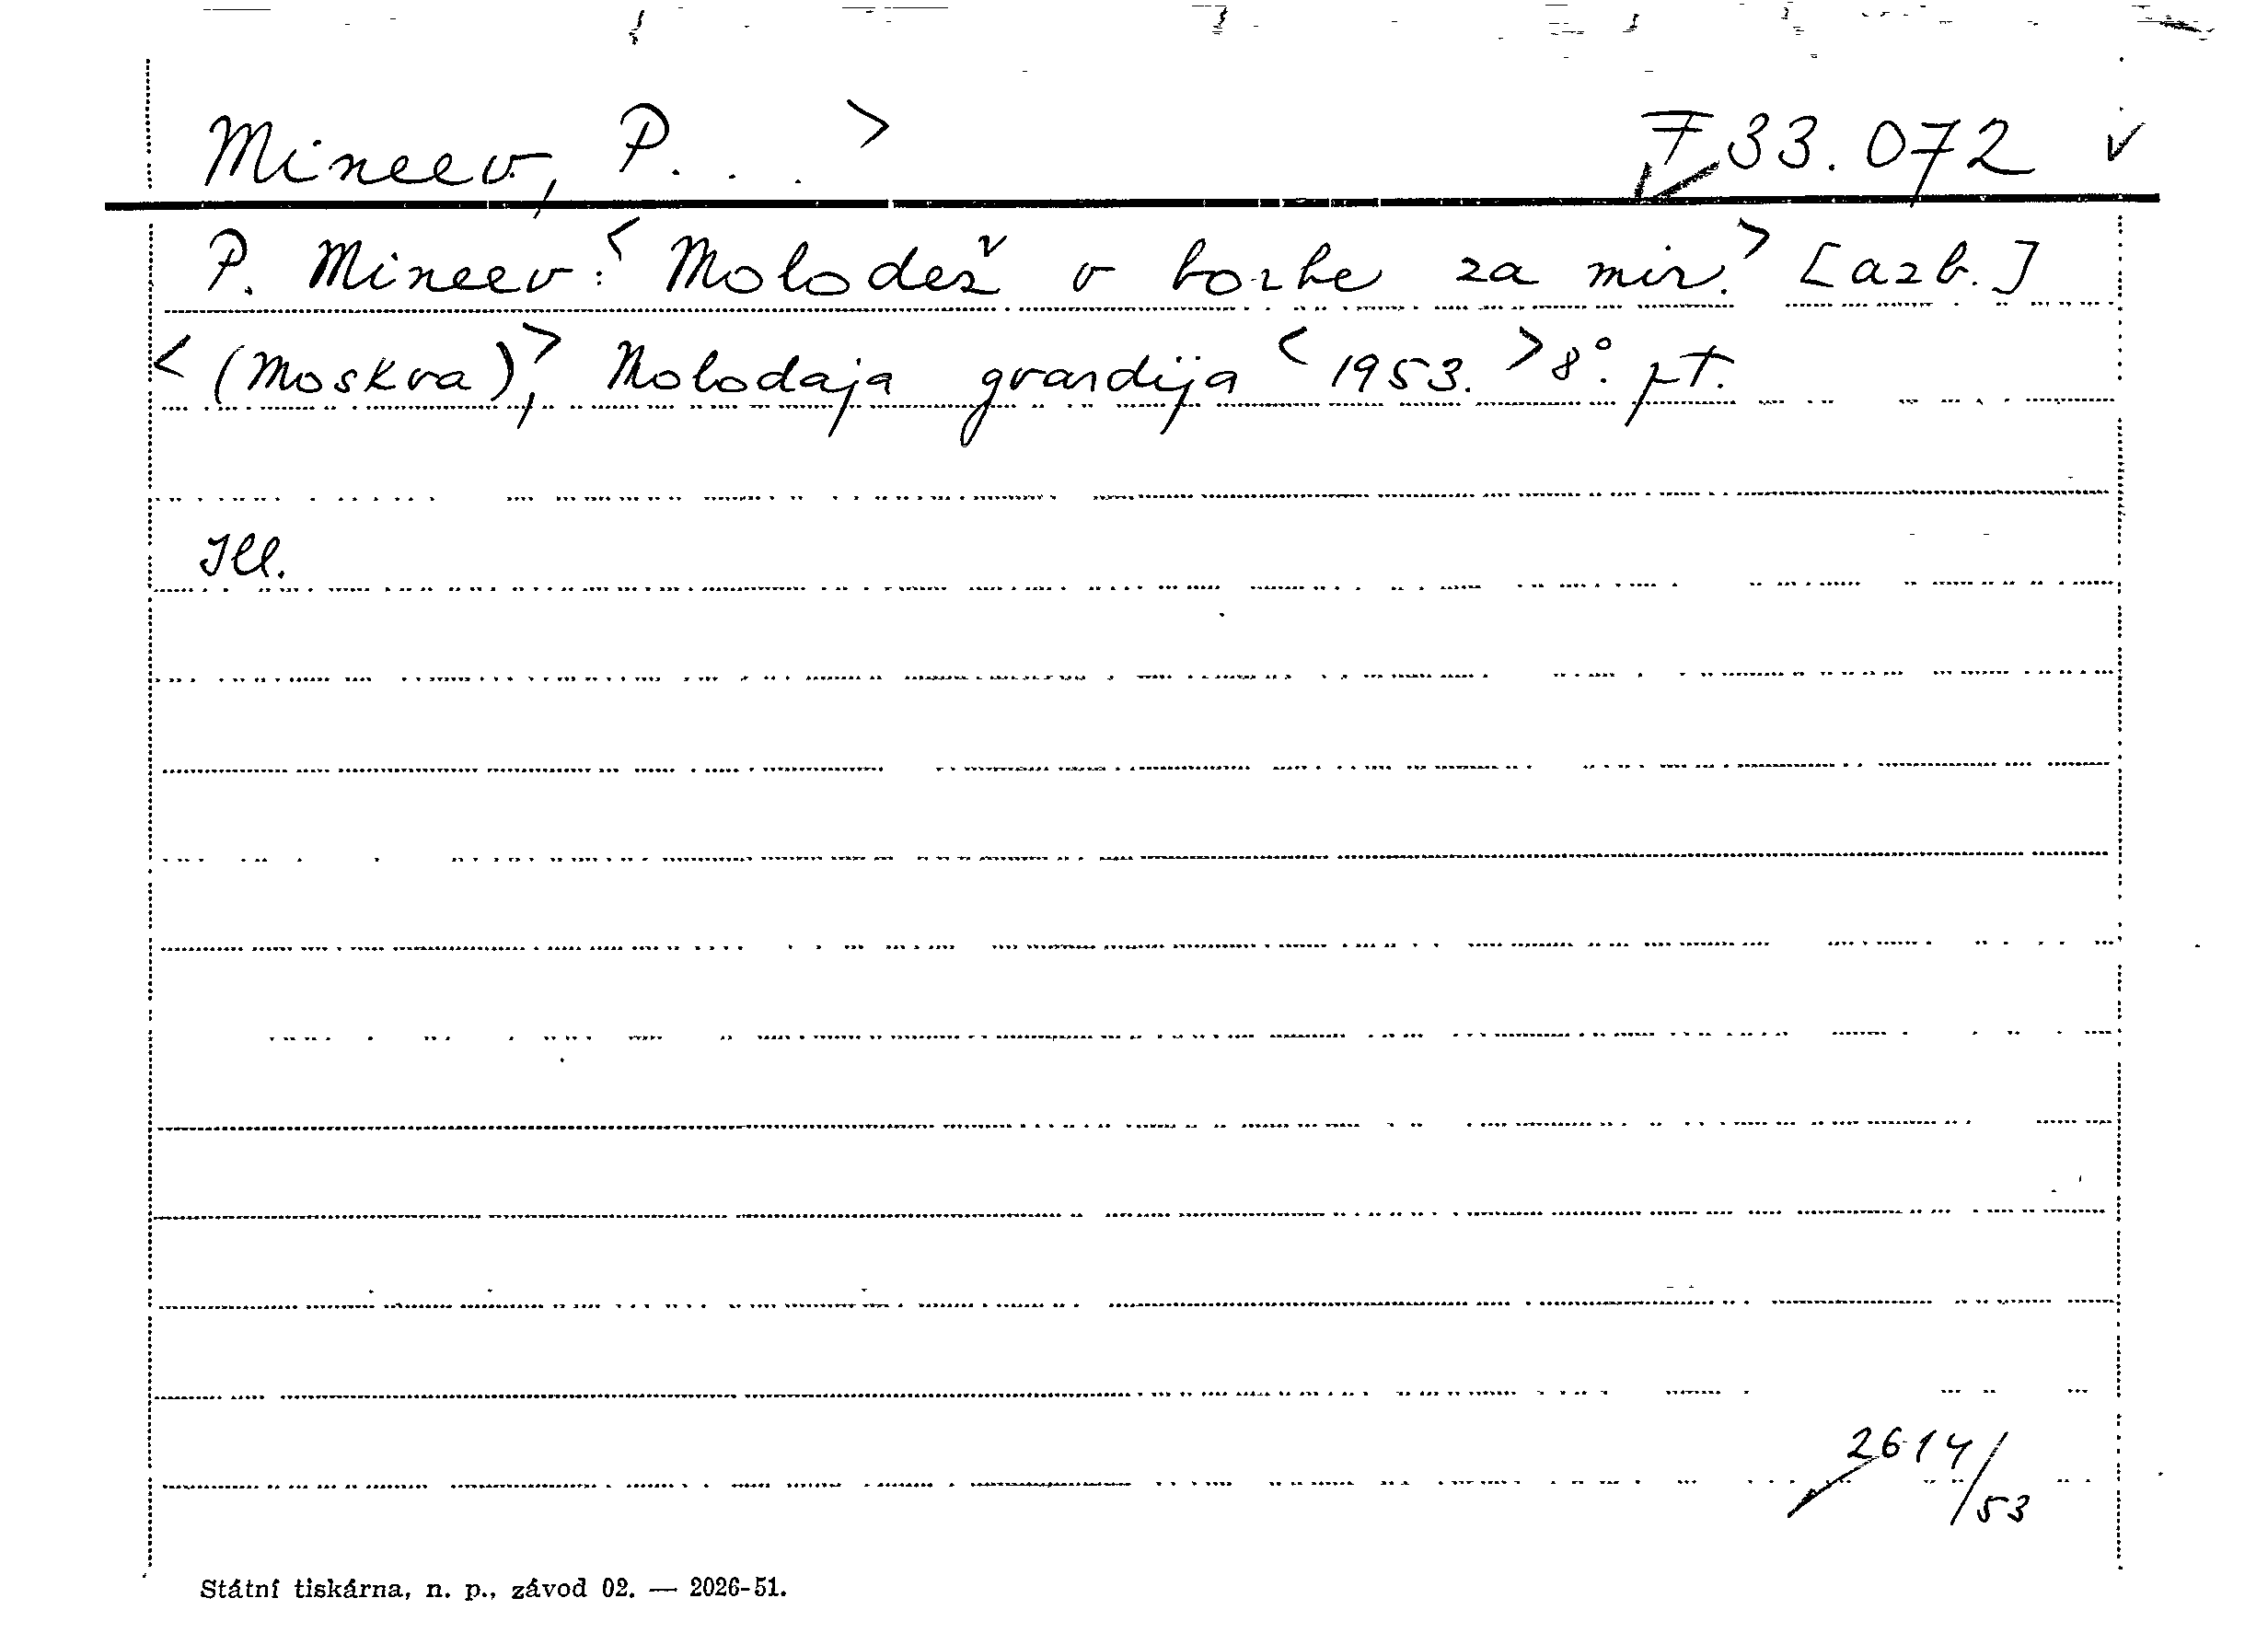 Mineev, P. . . > F 33.072 v
P. Mineev: < Molodež v borbe za mir. > [azb.]
< (Moskva), > Molodaja gvardija < 1953. > 8°. pt.
Ill.
2614/53
Státní tiskárna, n. p., závod 02. — 2026-51.